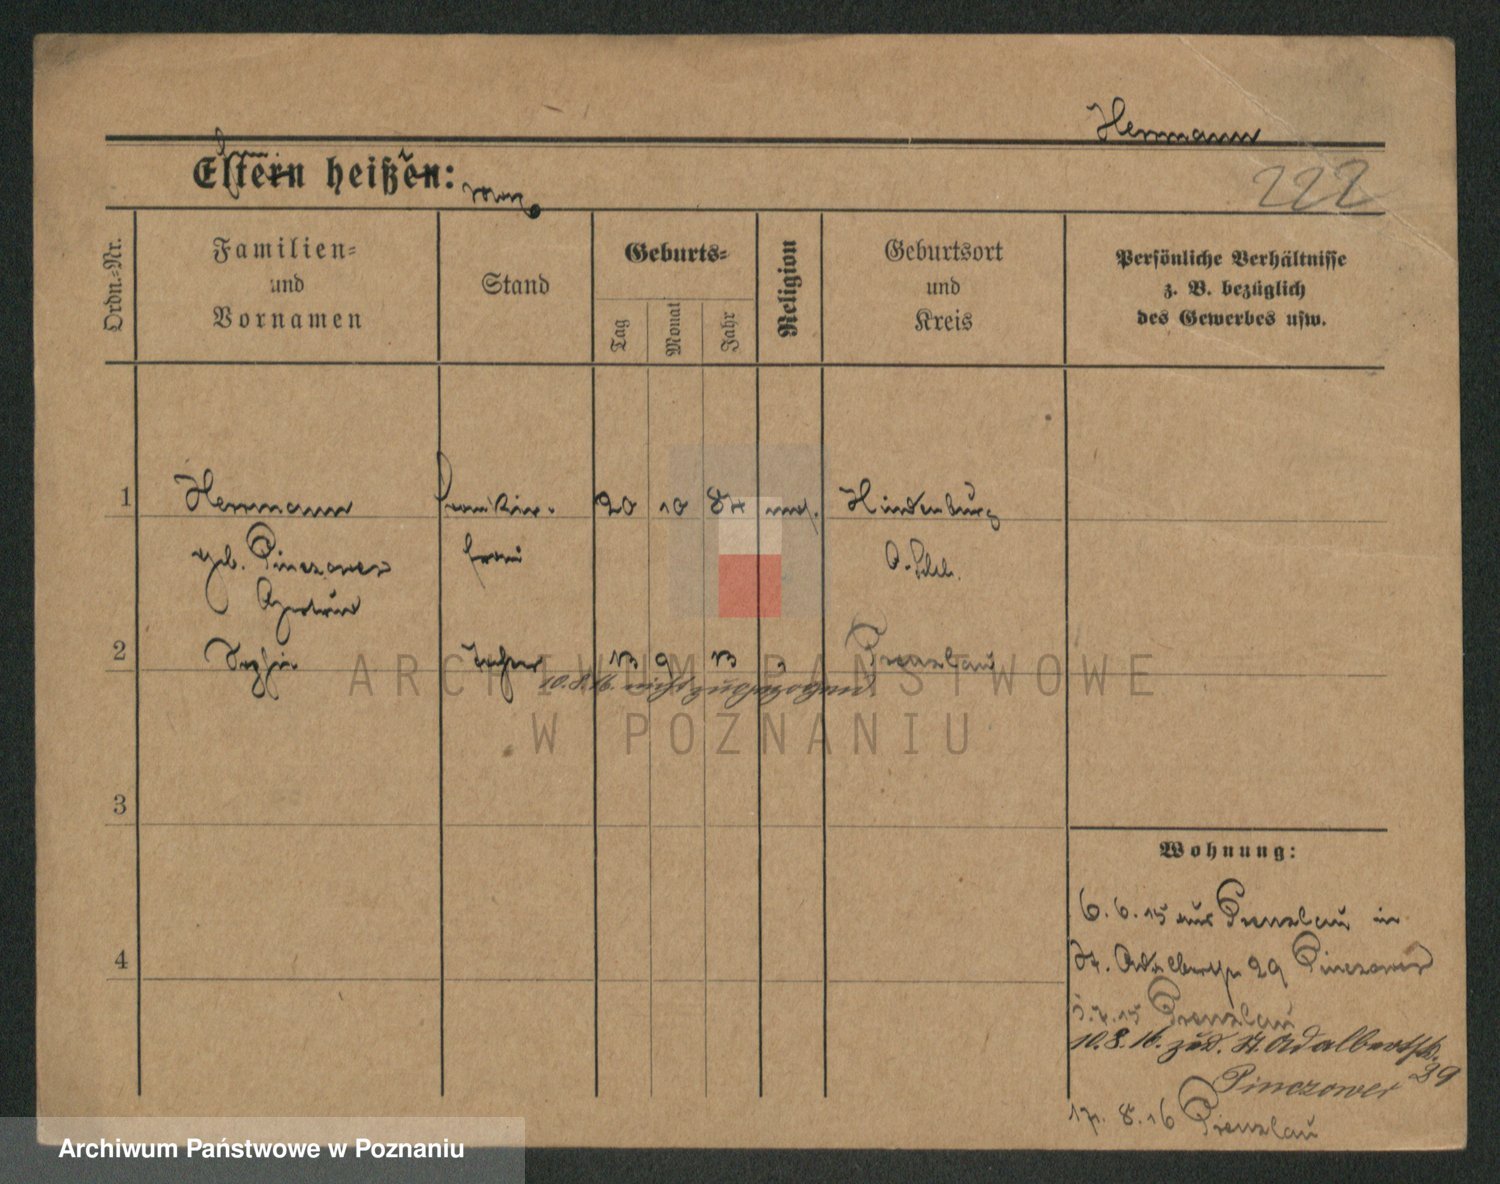 Herrmann
Eltern heißen:
222
Ordn.-Nr.
Familien-
und
Vornamen
Stand
Geburts-
Tag
Monat
Jahr
Religion
Geburtsort
und
Kreis
Persönliche Verhältnisse
z. B. bezüglich
des Gewerbes usw.
1 Herrmann 20 10 87 mos. Hindenburg
geb. Pinczower frau O.-Schl.
Gertrud
2 Tochter 13 9 13 Prenzlau
10.8.16. nicht zugezogen
ARCHIWUM PAŃSTWOWE
W POZNANIU
3
Wohnung:
6.6.15 aus Prenzlau in
4 St. Adalbertstr 29 Pinczower
5.7.15 Prenzlau
10.8.16. zud. St. Adalbertstr.
Pinczower 29
17.8.16 Prenzlau
Archiwum Państwowe w Poznaniu